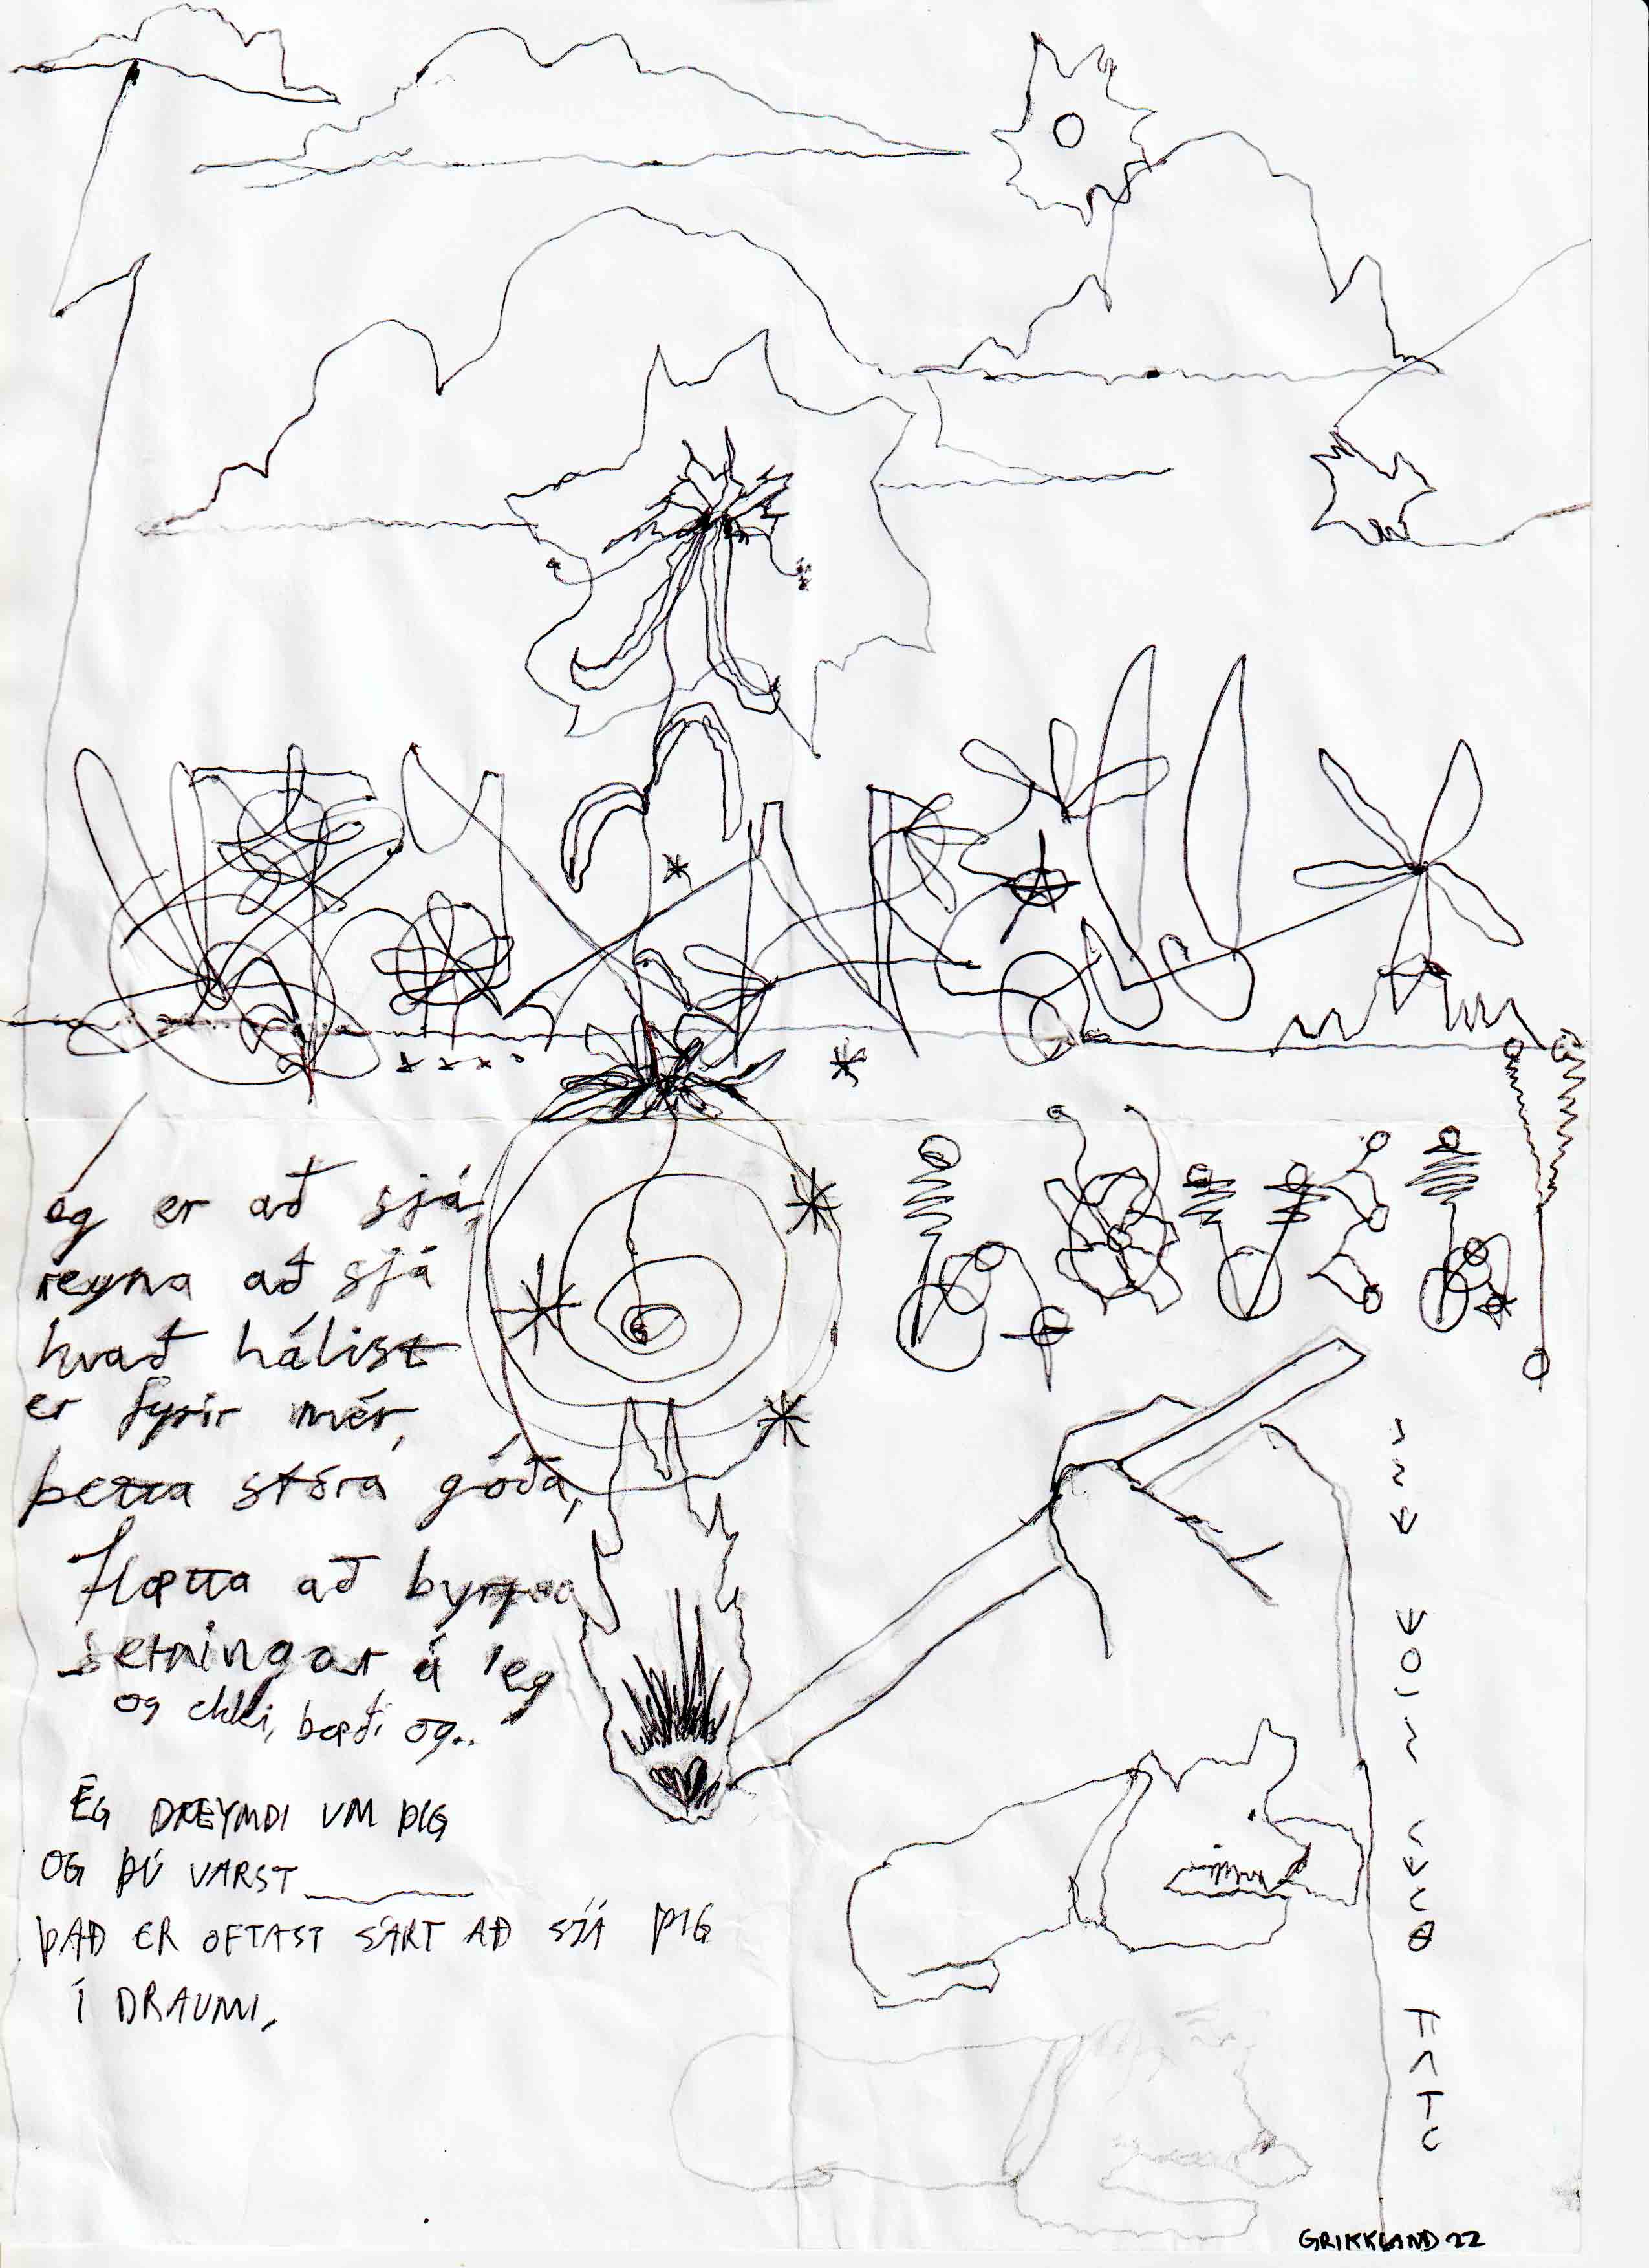 ég er að sjá,
reyna að sjá
hvað hálist
er fyrir mér,
þetta stóra góða,
Hætta að byrja
setningar á 'eg
og ekki, bæði og..
ÉG DREYMDI UM ÞIG
OG ÞÚ VARST
ÞAÐ ER OFTAST SÁRT AÐ SJÁ ÞIG
Í DRAUMI,
GRIKKLAND 22